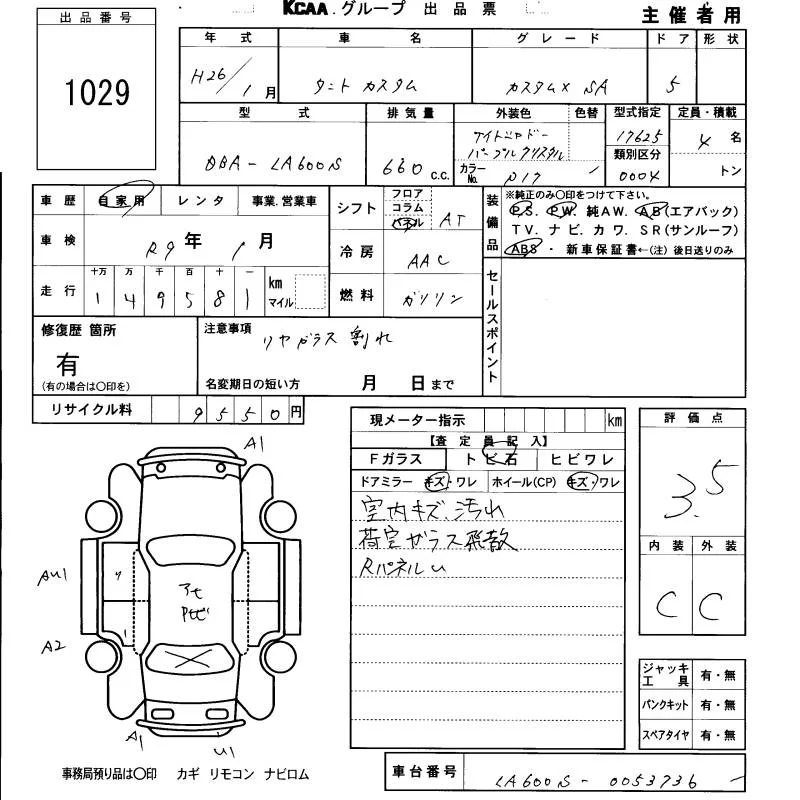 KCAA.グループ 出品票
主催者用
出品番号
1029
年式 車名 グレード ドア 形状
H26/1月 タント カスタム カスタムX SA 5
型式 排気量 外装色 色替 型式指定 定員・積載
DBA-LA600S 660 c.c. ナイトシャドーパープルクリスタル 17625 4名
類別区分
カラーNo. P19 0004 トン
車歴 自家用 レンタ 事業.営業車
シフト フロア コラム パネル AT
装備品
※純正のみ〇印をつけて下さい。
P.S. P.W. 純A.W. A.B(エアバック)
TV. ナビ. カワ. SR(サンルーフ)
ABS・新車保証書←(注)後日送りのみ
車検 R9年 1月
冷房 AAC
走行 十万 万 千 百 十 一 km マイル
1 4 9 5 8 1
燃料 ガソリン
セールスポイント
修復歴 箇所
有
(有の場合は〇印を)
注意事項
リヤガラス割れ
名変期日の短い方 月 日まで
リサイクル料 9550円
現メーター指示 km
【査定員記入】
Fガラス トビ石 ヒビワレ
ドアミラー キズ・ワレ ホイール(CP) キズ・ワレ
室内キズ.汚れ
荷室ガラス飛散
RパネルU
評価点
3.5
内装 外装
C C
A1
AU1
A2
A1
U1
ジャッキ工具 有・無
パンクキット 有・無
スペアタイヤ 有・無
事務局預り品は〇印 カギ リモコン ナビロム
車台番号 LA600S-0053736